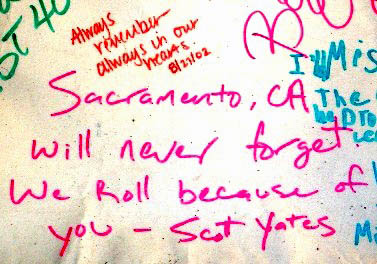 OT 40
Always
remember
always in our
hearts
8/27/02
I'll Mis
Sacramento, CA
The
will never forget.
We Roll because of
you – Scot Yates
Mi